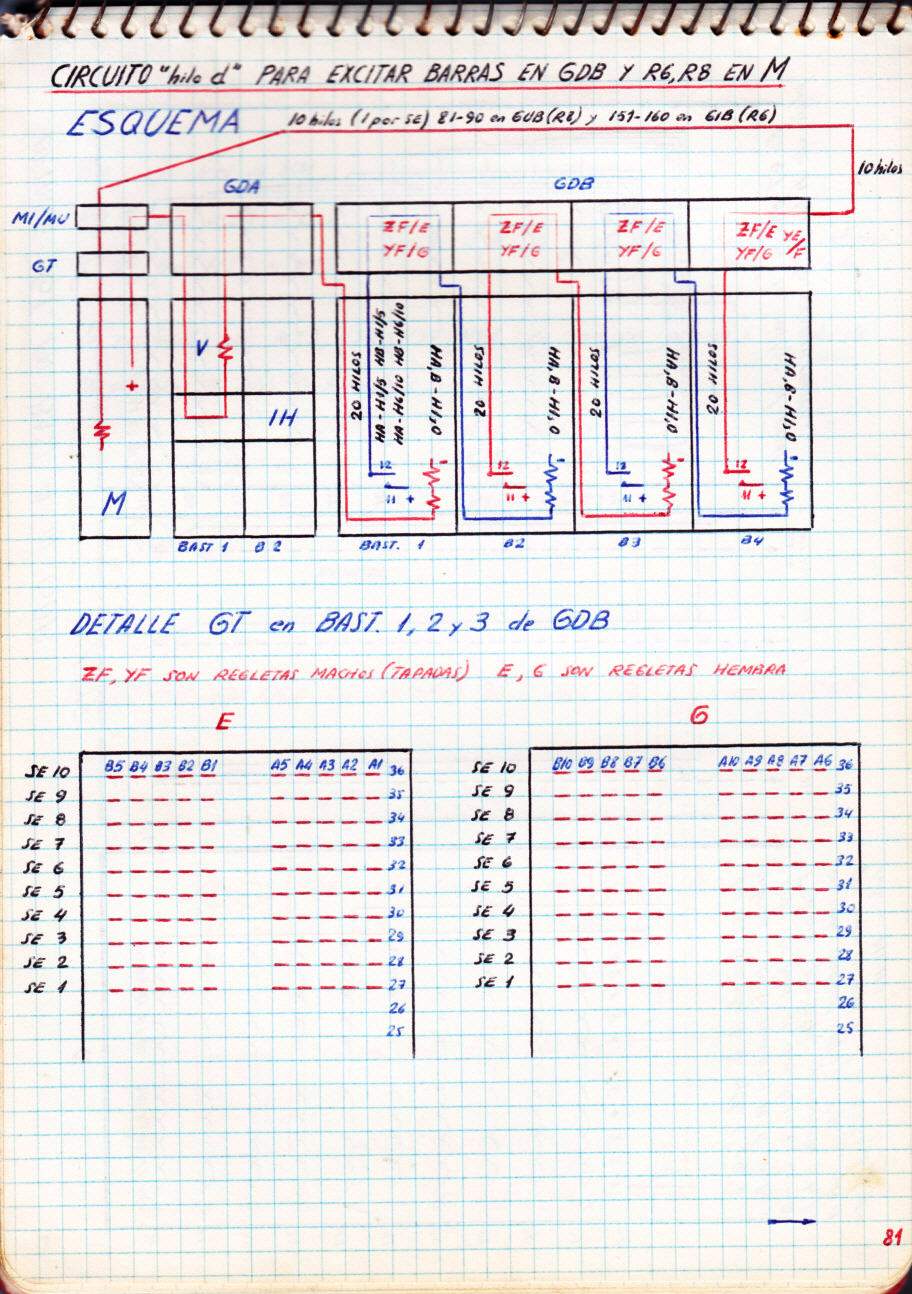 CIRCUITO "hilo d" PARA EXCITAR BARRAS EN GDB Y R6, R8 EN M
ESQUEMA
10 hilos (1 por SE) 81-90 en GUB (R8) y 151-160 en GIB (R6)
10 hilos
GDA GDB
MI/MU
GT
ZF/E ZF/E ZF/E ZF/E
YF/G YF/G YF/G YF/G YE/F
V
+
1H
M
20 HILOS
HA-H1/5 HB-H1/5
HA-H6/10 HB-H6/10
HA,B-H1,0
20 HILOS
HA,B-H1,0
20 HILOS
HA,B-H1,0
20 HILOS
HA,B-H1,0
12 - 12 - 12 - 12 -
11 + 11 + 11 + 11 +
BAST 1 B2 BAST. 1 B2 B3 B4
DETALLE GT en BAST. 1, 2 y 3 de GDB
ZF, YF SON REGLETAS MACHOS (TAPADAS) E, G SON REGLETAS HEMBRA
E
SE 10 B5 B4 B3 B2 B1 A5 A4 A3 A2 A1 36
SE 9 35
SE 8 34
SE 7 33
SE 6 32
SE 5 31
SE 4 30
SE 3 29
SE 2 28
SE 1 27
26
25
G
SE 10 B10 B9 B8 B7 B6 A10 A9 A8 A7 A6 36
SE 9 35
SE 8 34
SE 7 33
SE 6 32
SE 5 31
SE 4 30
SE 3 29
SE 2 28
SE 1 27
26
25
81